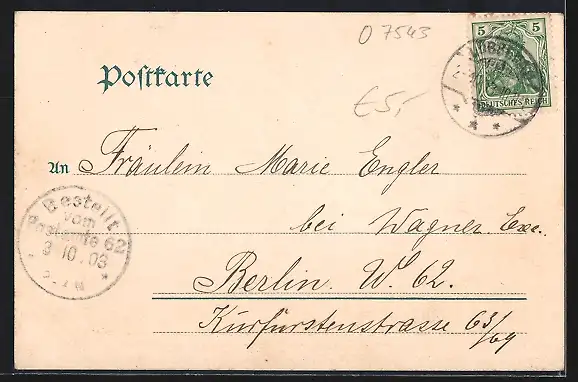 O 7543
5 5
DEUTSCHES REICH
Postkarte
€5,-
An Fräulein Marie Engler
bei Wagner Exc.
Bestellt
vom
Postamte 62
3.10.03
Berlin. W. 62.
Kurfürstenstrasse 63/64